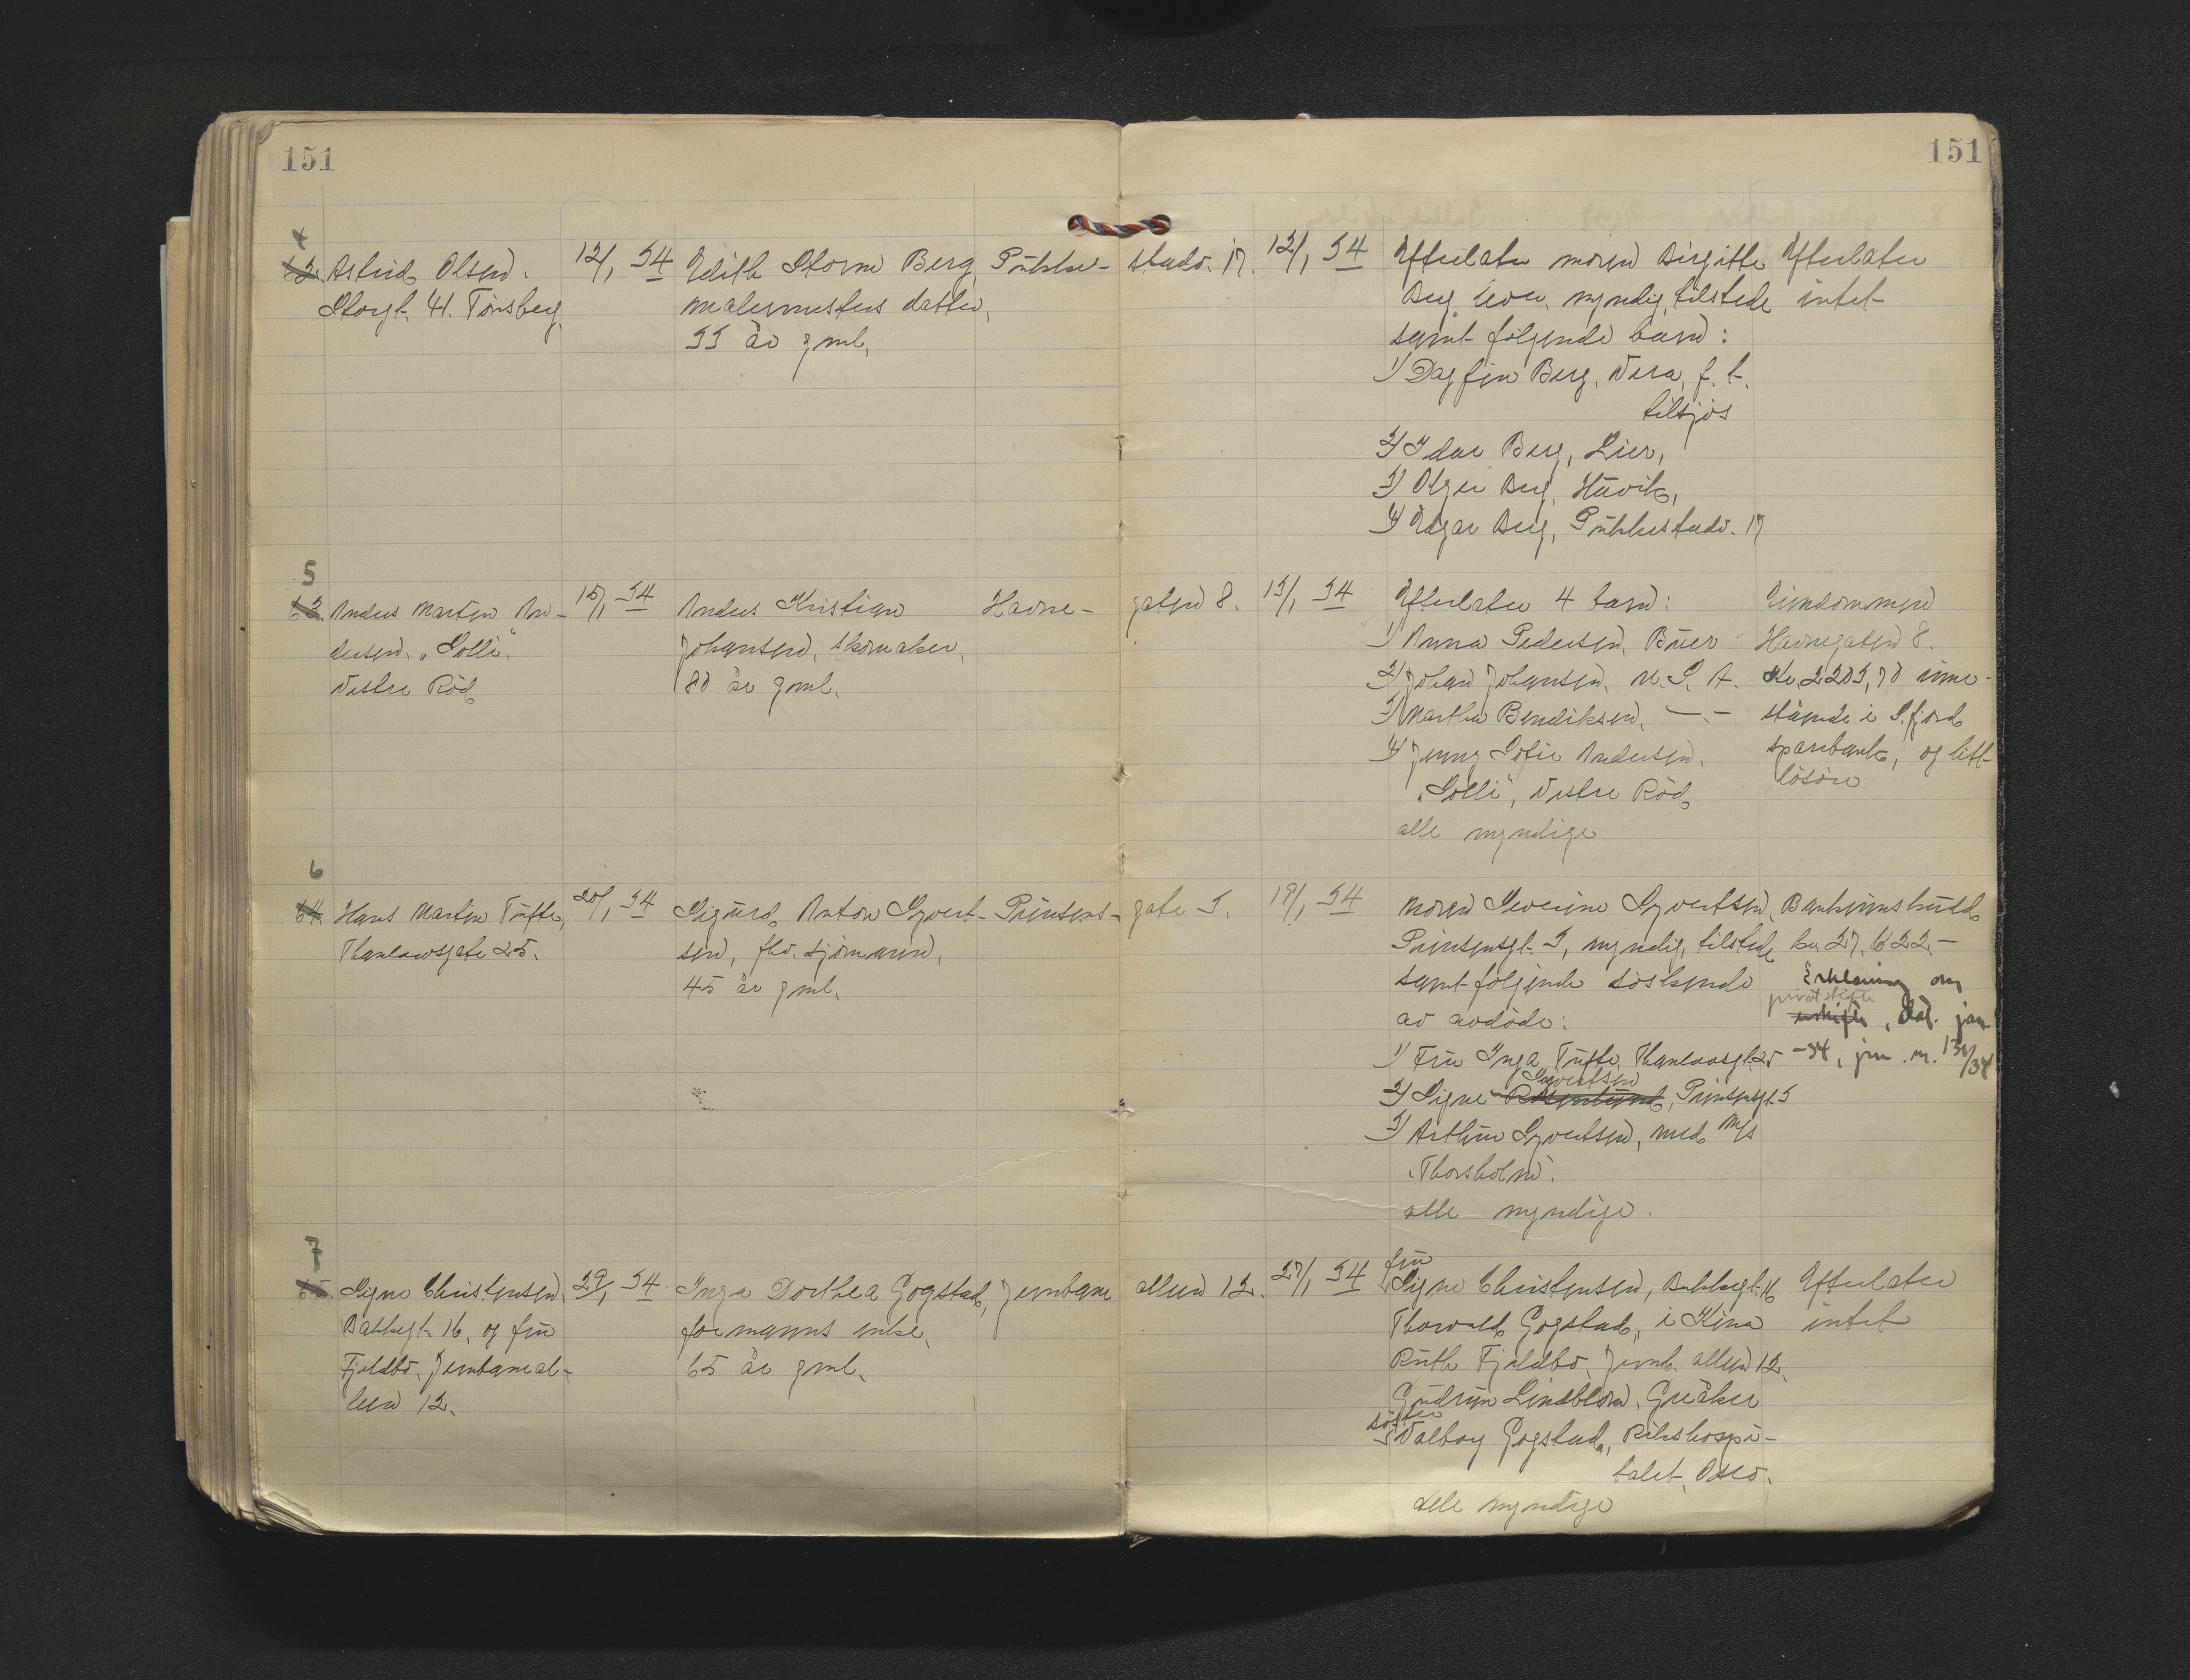 151
151
4
62. Astrid Olsen.
Storgt. 41. Tönsberg
12/1 34
Edith Storm Berg
malermesters datter,
33 år gml.
Pukke-
stadv. 17.
12/1 34
Efterlater moren Birgitte
Berg, lever, myndig, tilstede
samt følgende barn:
1) Dagfin Berg, Vera, f. t.
tilsjøs
2) Idar Berg, Lier,
3) Olger Berg, Håvik,
4) Edgar Berg, Pukkestadv. 17
Efterlater
intet
5
63. Anders Martin An-
dersen. „Solli",
Vestre Röd
15/1 34
Anders Kristian
Johansen, skomaker,
80 år gml.
Havne-
gaten 8.
13/1 34
Efterlater 4 barn:
1) Anna Pedersen, Buer
2) Johan Johansen, U.S.A.
3) Martha Bendiksen, —.—
4) Jenny Sofie Andersen,
„Solli", Vestre Röd
alle myndige
Eiendommen
Havnegaten 8.
Kr. 2203,70 inne-
stående i S.fjord
sparebank, og litt
lösöre
6
64. Hans Martin Tufte,
Thaulowsgate 25.
20/1 34
Sigurd Anton Syvert-
sen, fhv. sjömann,
45 år gml.
Prinsens-
gate 3.
19/1 34
Moren Severine Syvertsen,
Prinsensgt. 3, myndig, tilstede
samt følgende söskende
av avdöde:
1) Fru Inga Tufte, Thaulowsgt. 25
Syvertsen
2) Signe Rosenlund, Prinsensgt. 3
3) Arthur Syvertsen, med M/S
„Thorsholm".
alle myndige.
Bankinnskudd
kr. 27,622.—
Erklæring om
privat skifte
uskifte, dat. jan
-34, jnr. nr. 131/34
7
65. Signe Christensen,
Bakkegt. 16, og fru
Fjeldbo, Jernbaneal-
leen 12.
29/1 34
Inga Dorthea Gogstad,
formanns enke,
65 år gml.
Jernbane
alleen 12.
27/1 34
fru
Signe Christensen, Bakkegt. 16
Thorvald Gogstad, i Kina
Ruth Fjeldbo, Jernb. alleen 12,
Gudrun Lindblom, Greåker
söster
Valborg Gogstad, Rikshospi-
talet, Oslo.
alle myndige
Efterlater
intet